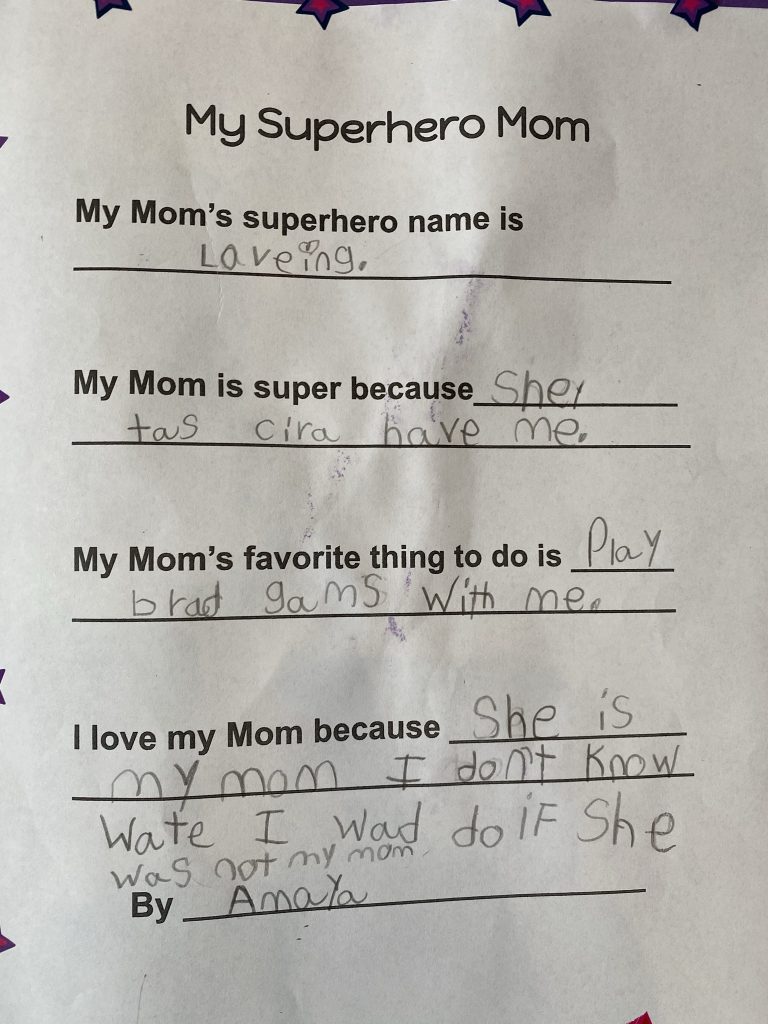 My Superhero Mom
My Mom's superhero name is
Laveing.
My Mom is super because She
tas cira have me.
My Mom's favorite thing to do is Play
brad gams with me.
I love my Mom because She is
my mom I don't know
Wate I wad do iF She
was not my mom
By Amaya